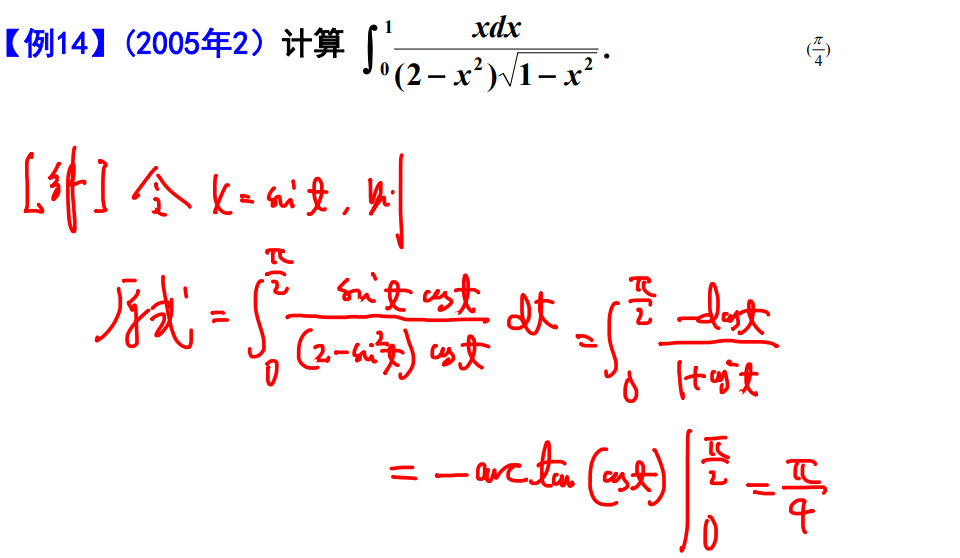 【例14】(2005年2) 计算 ∫₀¹ xdx / ((2 − x²)√(1 − x²)) . (π/4)
[解] 令 x = sin t, 则
原式 = ∫₀^(π/2) (sin t cos t) / ((2 − sin²t) cos t) dt = ∫₀^(π/2) (−d cos t) / (1 + cos²t)
= − arctan (cos t) |₀^(π/2) = π/4